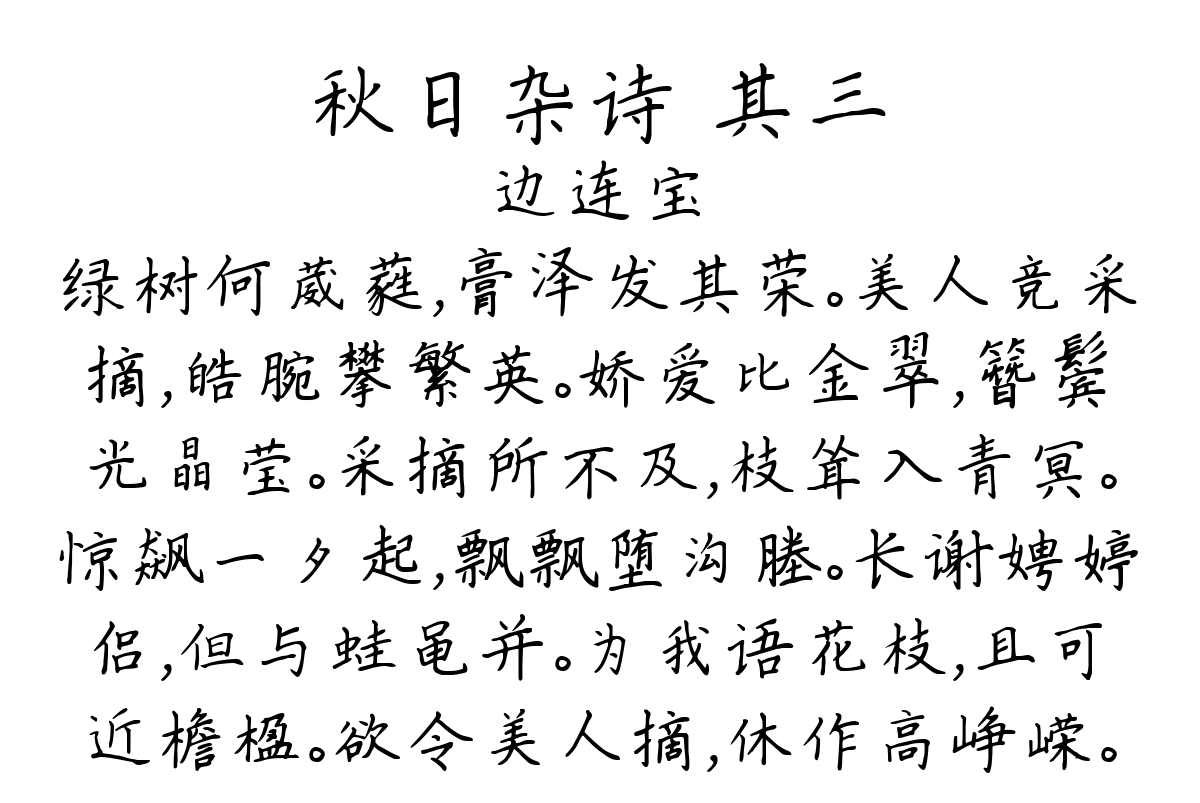 秋日杂诗 其三
边连宝
绿树何葳蕤,膏泽发其荣。美人竞采
摘,皓腕攀繁英。娇爱比金翠,簪鬓
光晶莹。采摘所不及,枝耸入青冥。
惊飙一夕起,飘飘堕沟塍。长谢娉婷
侣,但与蛙黾并。为我语花枝,且可
近檐楹。欲令美人摘,休作高峥嵘。